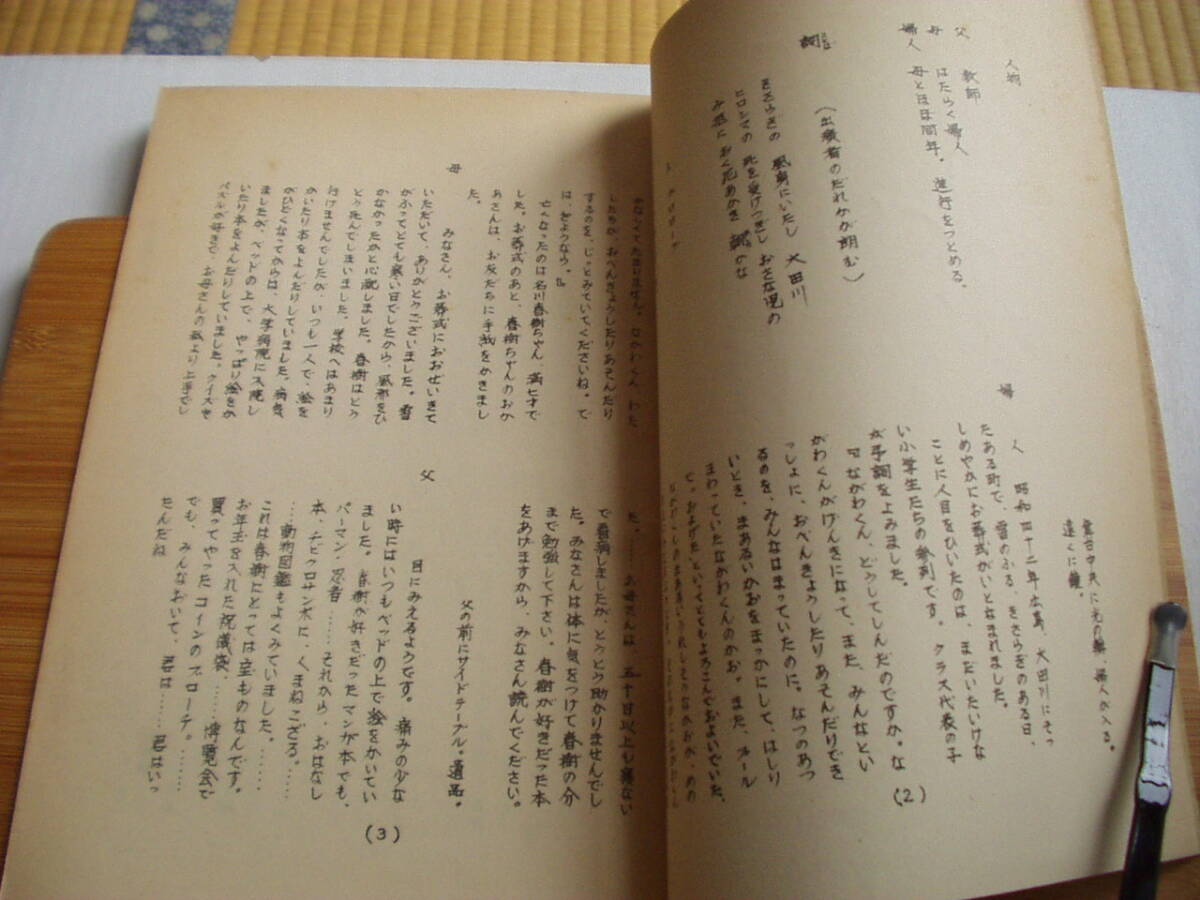 人物
父　教師
母　はたらく婦人
婦人　母とほぼ同年。進行をつとめる。
詞
(出演者のだれかが朗む)
きさらぎの 風身にいたし 太田川
ヒロシマの 死を受けつぎし おさな児の
み墓におく花あかき
舞台中央に光の輪、婦人が入る。
遠くに鐘。
婦　人　昭和四十二年広島、太田川にそっ
たある町で、雪のふる、きさらぎのある日、
しめやかにお葬式がいとなまれました。
ことに人目をひいたのは、まだいたいけな
い小学生たちの参列です。クラス代表の子
が弔詞をよみました。
『ながわくん、どうしてしんだのですか。な
がわくんがげんきになって、また、みんなとい
っしょに、おべんきょうしたりあそんだりでき
るのを、みんなはまっていたのに。なつのあつ
いとき、まあるいかおをまっかにして、はしり
まわっていたなかわくんのかお。また、プール
で、およげたといってとてもよろこんでおよいでいた、
(2)
かなしくてたまりません。なかわくん わた
したちが おべんきょうしたりあそんだり
するのを、じっとみていてくださいね。で
は、さようなら。』
亡くなったのは名川春樹ちゃん 満七才で
した。お葬式のあと、春樹ちゃんのおか
あさんは、お友だちに手紙をかきまし
た。
母　みなさん、お葬式におおぜいきて
いただいて、ありがとうございました。雪
がふってとても寒い日でしたから、風邪をひ
かなかったかと心配しました。春樹はとう
とう死んでしまいました。学校へはあまり
行けませんでしたが、いつも一人で、絵を
かいたり本をよんだりしていました。病気
がひどくなってからは、大学病院に入院し
ましたが、ベッドの上で、やっぱり絵をか
いたり本をよんだりしていました。クイズや
パズルが好きで、お母さんの私より上手でし
た。……お母さんは 五十日以上も寝ない
で看病しましたが、とうとう助かりませんでし
た。みなさんは体に気をつけて春樹の分
まで勉強して下さい。春樹が好きだった本
をあげますから、みなさん読んでください。
父の前にサイドテーブル。遺品。
父　目にみえるようです。痛みの少な
い時にはいつもベッドの上で絵をかいてい
ました。春樹が好きだったマンが本でも、
パーマン、忍者……それから、おはなし
本、チビクロサンボに、くまねこざる。
……動物図鑑もよくみていました。……
これは春樹にとっては宝ものなんです。
お年玉を入れた祝儀袋、……博覧会で
買ってやったコインのブローチ。……
でも、みんなおいて、君は……君はいっ
たんだね
(3)